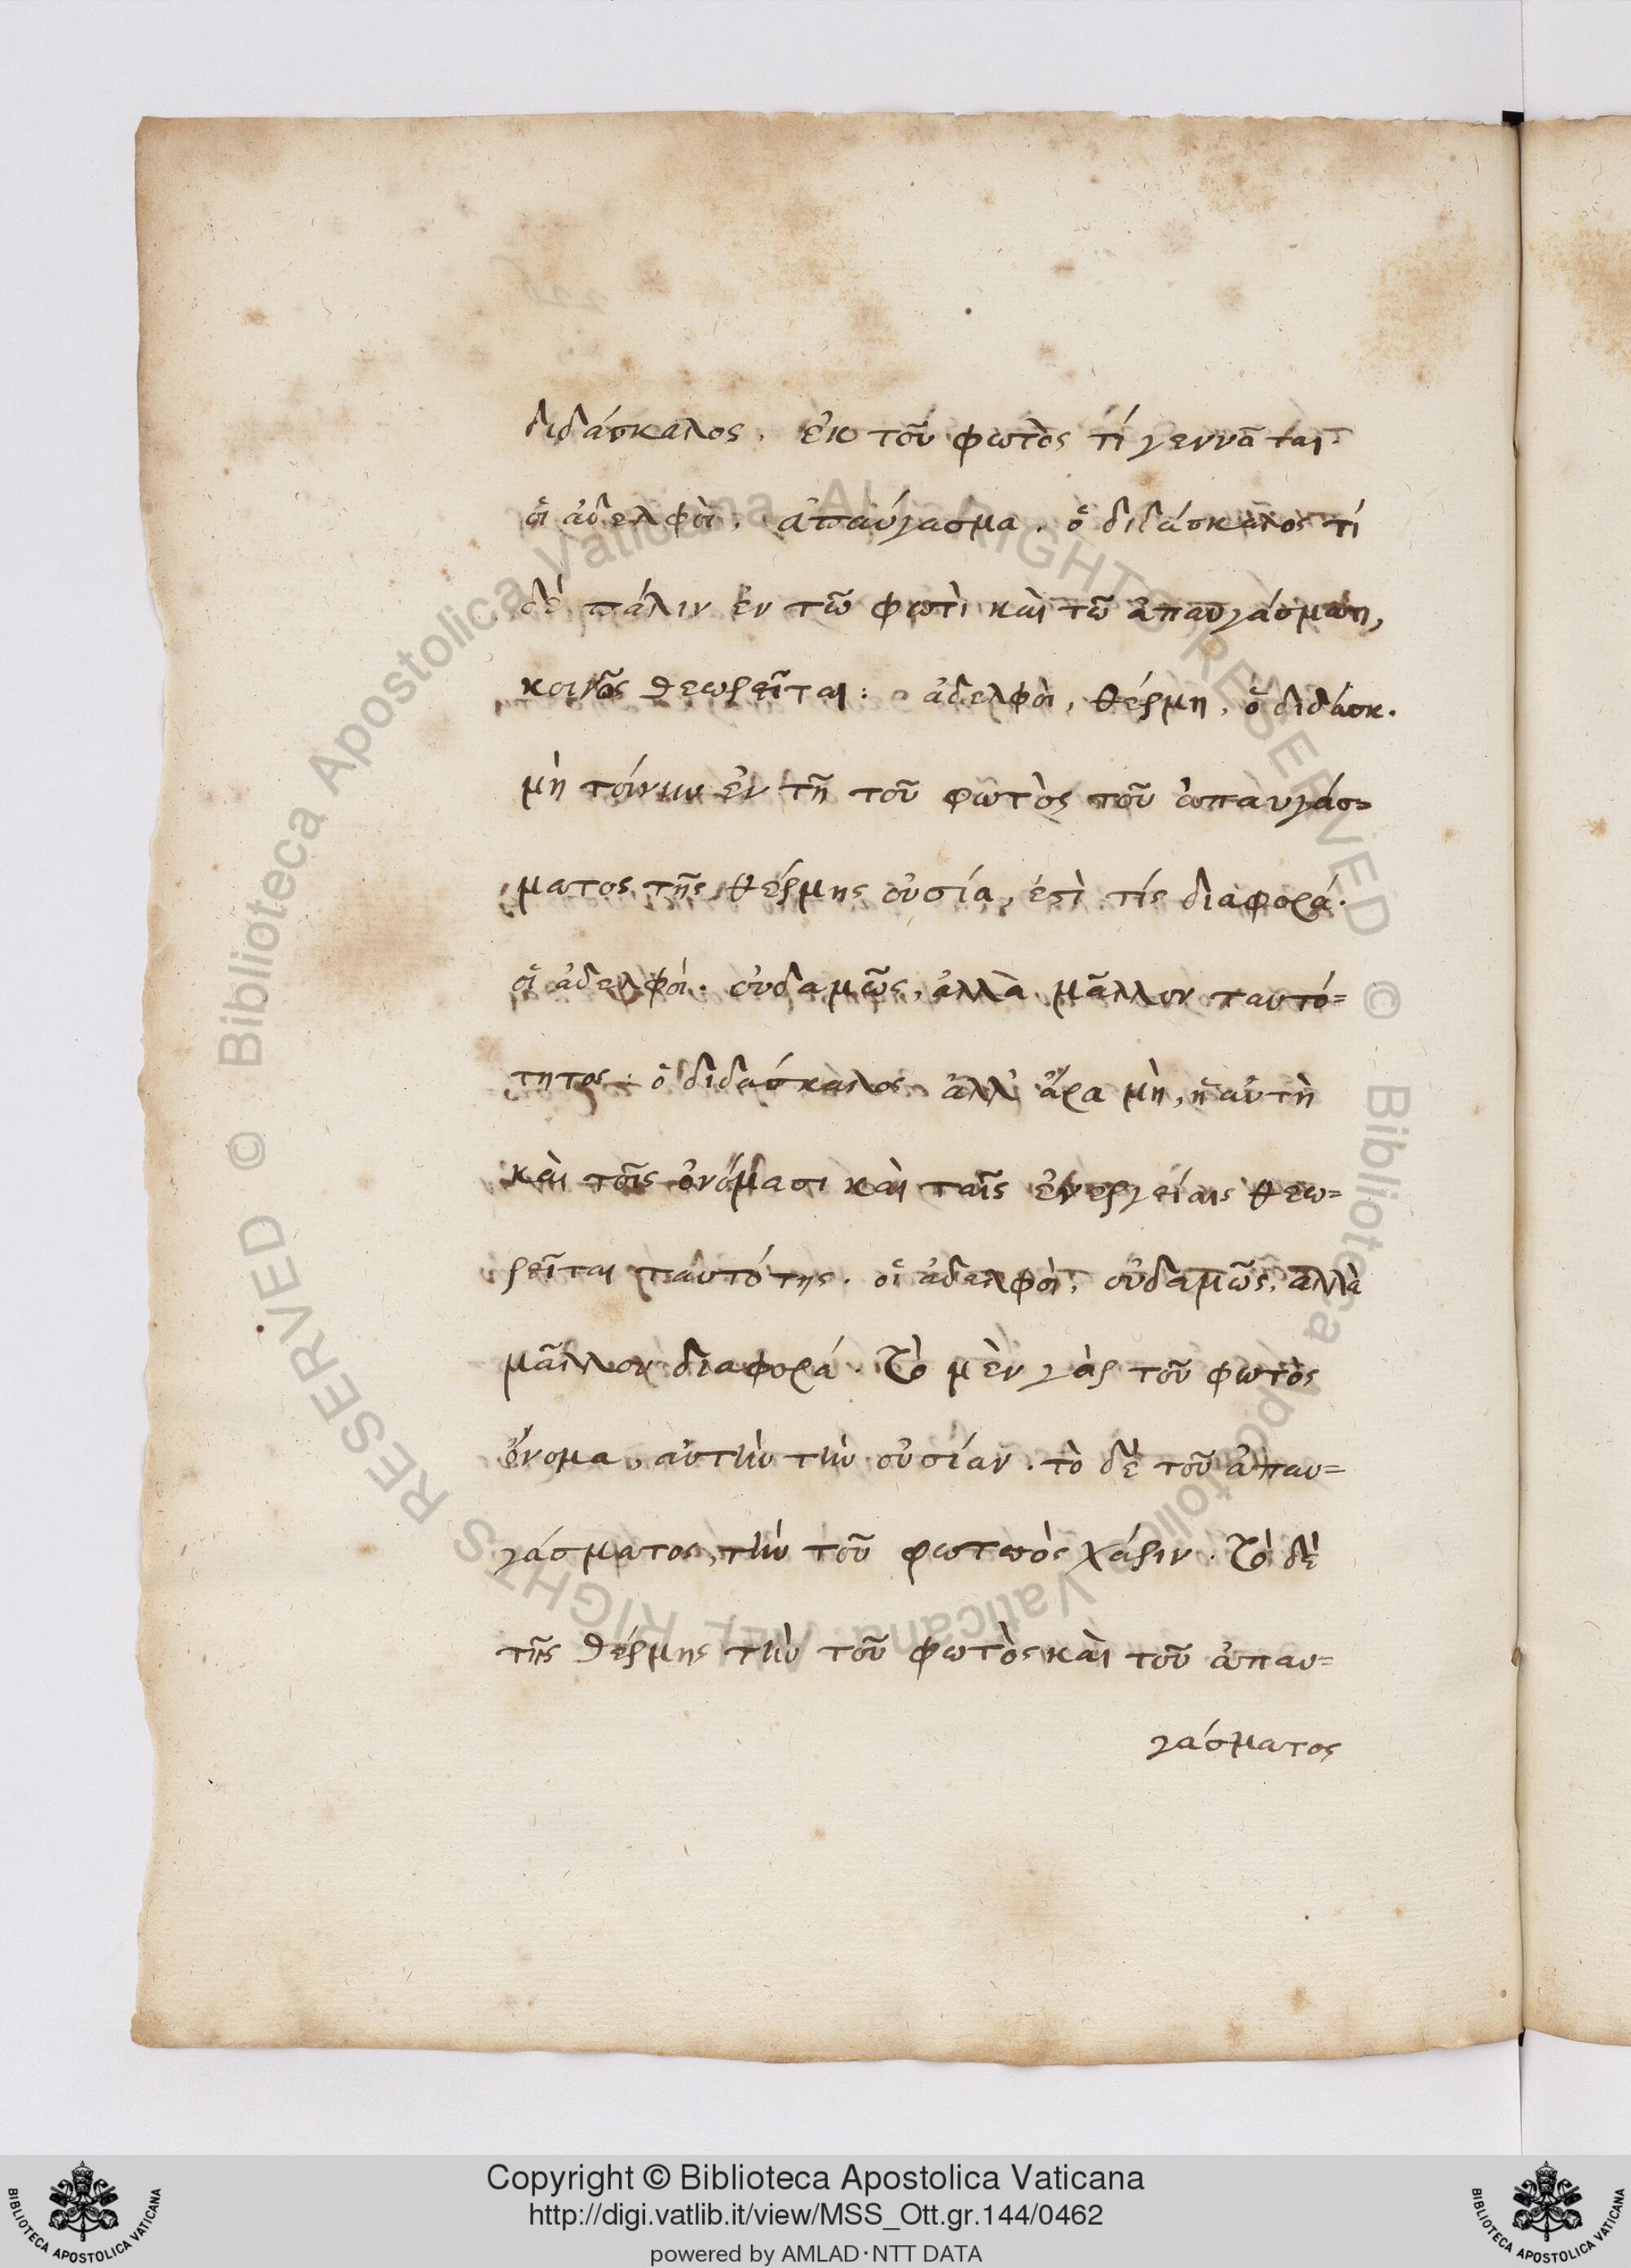 διδάσκαλος. ἐκ τοῦ φωτὸς τί γεννᾶται·
οἱ ἀδελφοὶ, ἀπαύγασμα. ὁ διδάσκαλος τί
δὲ πάλιν ἐν τῶ φωτὶ καὶ τῶ ἀπαυγάσματι,
κοινῶς θεωρεῖται: ο ἀδελφοὶ, θέρμη, ὁ διδάσκ.
μὴ τοίνυν ἐν τῆ τοῦ φωτὸς τοῦ ἀπαυγάσ=
ματος τῆς θέρμης οὐσία, ἐστὶ τίς διαφορά·
οἱ ἀδελφοί· οὐδαμῶς, ἀλλὰ μᾶλλον ταυτό=
τητος· ὁ διδάσκαλος ἀλλ' ἄρα μὴ, ἡ αὐτὴ
καὶ τοῖς ὀνόμασι καὶ ταῖς ἐνεργείαις θεω=
ρεῖται ταυτότης. οἱ ἀδελφοὶ, οὐδαμῶς, ἀλλὰ
μᾶλλον διαφορά. Τὸ μὲν γὰρ τοῦ φωτὸς
ὄνομα, αὐτὴν τὴν οὐσίαν. τὸ δὲ τοῦ ἀπαυ=
γάσματος, τὴν τοῦ φωτὸς χάριν. Τὸ δὲ
τῆς θέρμης τὴν τοῦ φωτὸς καὶ τοῦ ἀπαυ=
γάσματος
© Biblioteca Apostolica Vaticana ALL RIGHTS RESERVED © Biblioteca Apostolica Vaticana ALL RIGHTS RESERVED
Copyright © Biblioteca Apostolica Vaticana
http://digi.vatlib.it/view/MSS_Ott.gr.144/0462
powered by AMLAD·NTT DATA
BIBLIOTECA APOSTOLICA VATICANA
BIBLIOTECA APOSTOLICA VATICANA